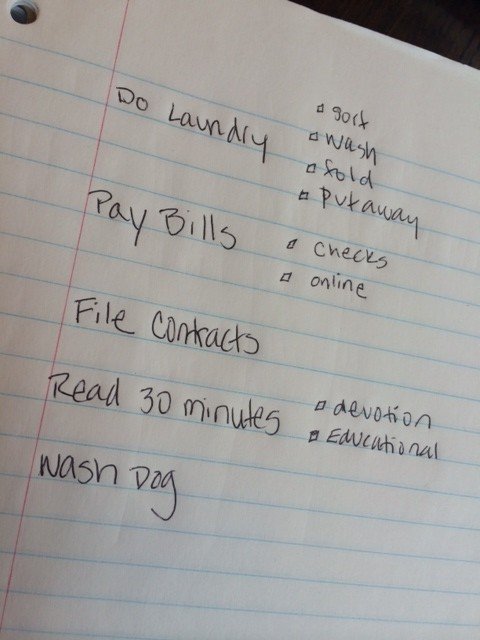 Do Laundry
▫ sort
▫ wash
▫ fold
▫ putaway
Pay Bills
▫ checks
▫ online
File Contracts
Read 30 minutes
▫ devotion
▫ Educational
Wash Dog